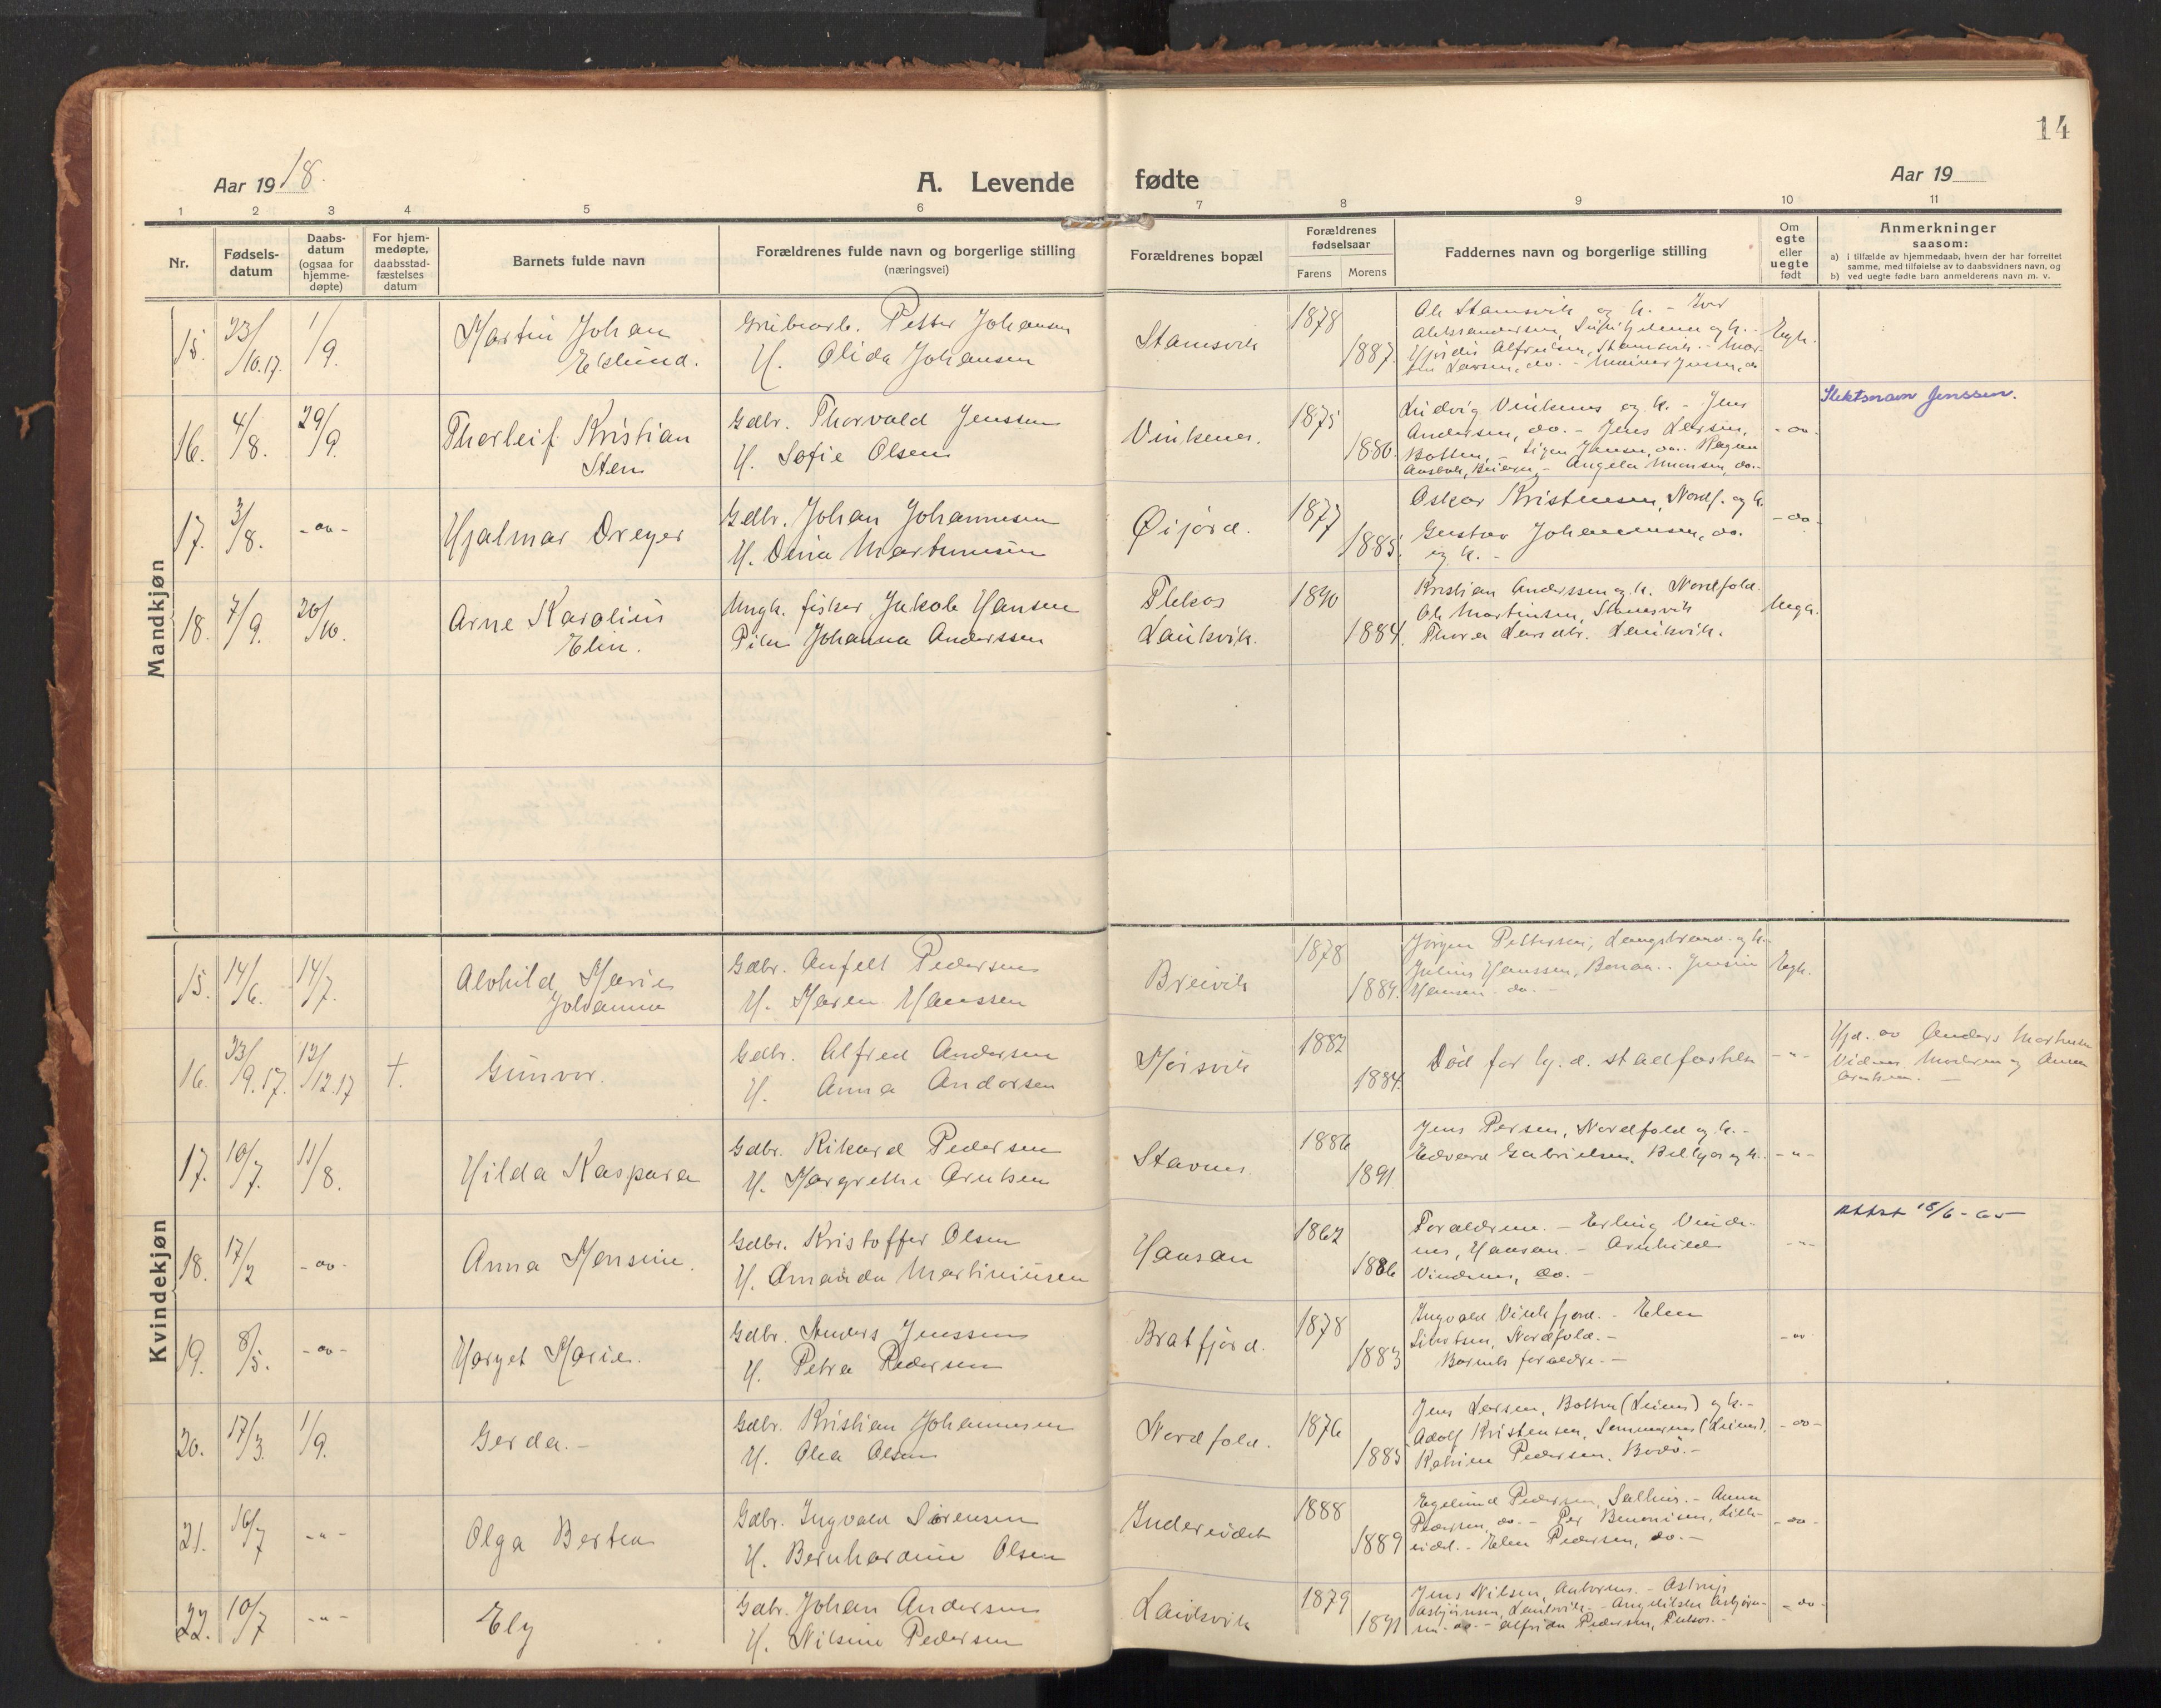 14
Aar 1918.
A. Levende fødte
Aar 19
1 2 3 4 5 6 7 8 9 10 11
Nr.
Fødsels-
datum
Daabs-
datum
(ogsaa for
hjemme-
døpte)
For hjem-
medøpte,
daabsstad-
fæstelses
datum
Barnets fulde navn
Forældrenes fulde navn og borgerlige stilling
(næringsvei)
Forældrenes bopæl
Forældrenes
fødselsaar
Farens Morens
Faddernes navn og borgerlige stilling
Om
egte
eller
uegte
født
Anmerkninger
saasom:
a) i tilfælde av hjemmedaab, hvem der har forrettet
samme, med tilføielse av to daabsvidners navn, og
b) ved uegte fødte barn anmelderens navn m. v.
Mandkjøn
15. 23/10.17. 1/9.
Martin Johan
Eklund.
Petter Johansen
H. Olida Johansen
Stamsvik
1878
1887.
Ole Stamsvik og h. - Ivar
Egte.
16. 4/8. 29/9.
Thorleif Kristian
Sten
Gdbr. Thorvald Jenssen
H. Sofie Olsen
Vinkenes.
1875
1880.
Ludvig Vinkenes og h. - Jens
Andersen, do. - Jens Larsen,
- do -
Slektsnavn Jenssen.
17. 3/8. - do -
Hjalmar Dreyer
Gdbr. Johan Johannesen
H. Dina Martinusen
Øijord.
1877
1885.
Oskar Kristensen, Nordf. og h.
Gustav Johannesen, do.
og h. -
- do -
18. 7/9. 20/10.
Arne Karolius
Elin.
Ungk. fisker Jakob Hansen
Pike Johanna Anderssen
Flekos
Lauksvik.
1890
1884.
Kristian Anderssen og h. Nordfold.
Ole Martinsen, Stamsvik
Thora Larsdtr. Lauksvik.
Uegte.
Kvindekjøn
15. 14/6. 14/7.
Alvhild Marie
Johanna
Gdbr. Anfelt Pedersen
H. Maren Hanssen
Breivik
1878
1884.
Jørgen Pettersen, Langstrand og h.
Julius Hanssen,
Hansen do. -
Egte.
16. 23/9.17. 12/12.17 †.
Gunvor.
Gdbr. Alfred Andersen
H. Anna Andersen
Mørsvik
1882
1884.
Død før hj. d. stadfæstelse
- " -
Hjd. av Anders Martinsen
17. 10/7. 11/8.
Hilda Kaspara
Gdbr. Rikard Pedersen
H. Margrethe Arntsen
Stavnes.
1886
1891.
Jens Persen, Nordfold og h. -
Edvard Gabrielsen,
- " -
18. 17/2 - do -
Anna Jensine.
Gdbr. Kristoffer Olsen
H. Amanda Martiniusen
Hansan
1862
1886
Forældrene. - Erling Vinde-
nes, Hansan. - Arnhild
Vindenes, do. -
- " -
Attst 18/6-65
19. 8/5. - do -
Harget Marie.
Gdbr. Anders Jenssen
H. Petra Pedersen
Bratfjord.
1878
1883
Ingvald Vinkfjord. - Elen
Sivertsen, Nordfold. -
Barnets forældre. -
- do
20. 17/3. 1/9.
Gerda. -
Gdbr. Kristian Johannesen
H. Olea Olsen
Nordfold.
1876
1885
Jens Larsen, Botten (Leines) og h. -
Adolf Kristensen, Sommernes (Leines),
Katrine Pedersen, Bodø. -
- do -
21. 16/7 - " -
Olga Bertea
Gdbr. Ingvald Sørensen
H. Bernhardine Olsen
Indereidet
1888
1889
Egelund Pedersen, Salhus. - Anna
Pedersen, do. - Per Benonisen,
eidet. - Elen Pedersen, do. -
- do -
22. 10/7 - " -
Ely
Gdbr. Johan Andersen
H. Nilsine Pedersen
Lauksvik
1879
1891
Jens Nilsen,
Asbjørnsen, Lauksvik. -
Alfrida Pedersen, -
- do -